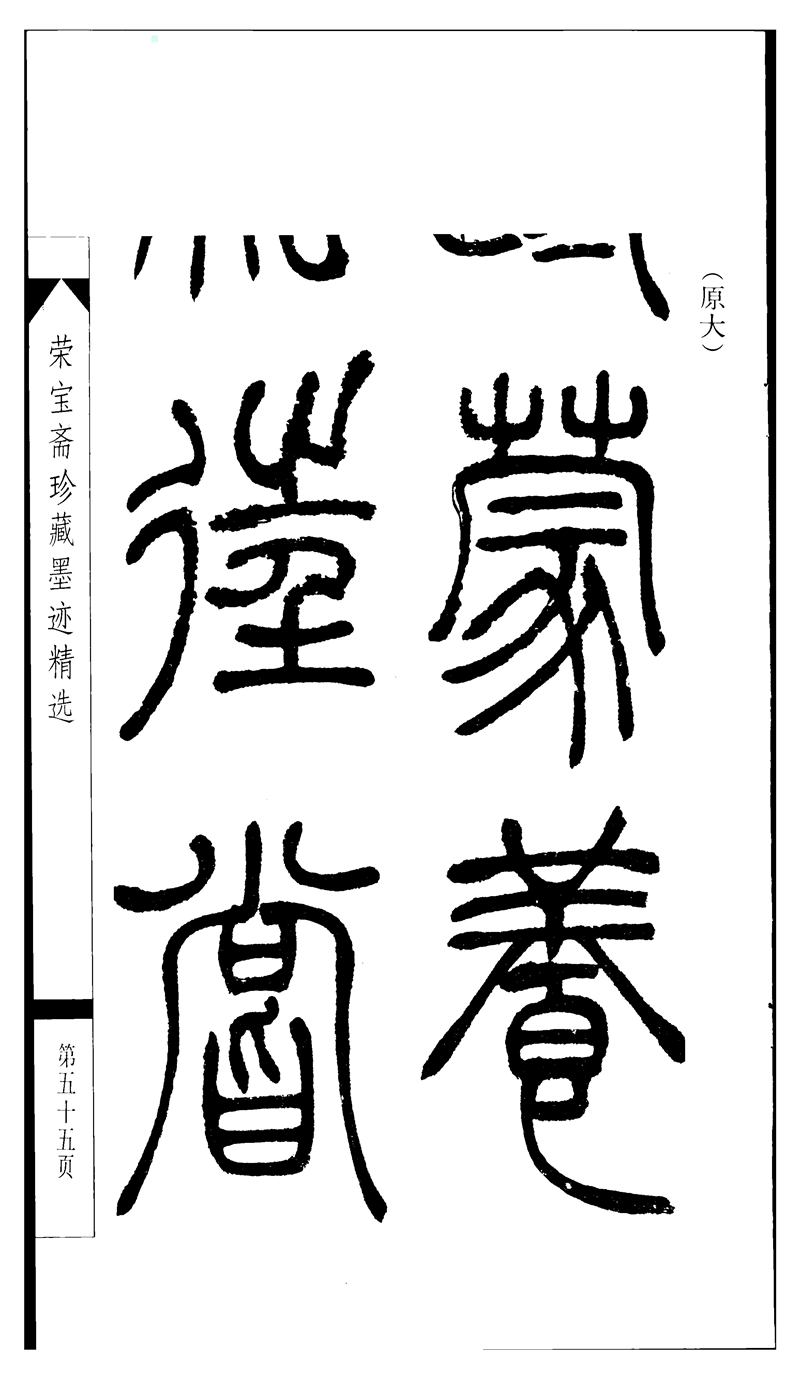 （原大）
蒙養
嘗
荣宝斋珍藏墨迹精选
第五十五页